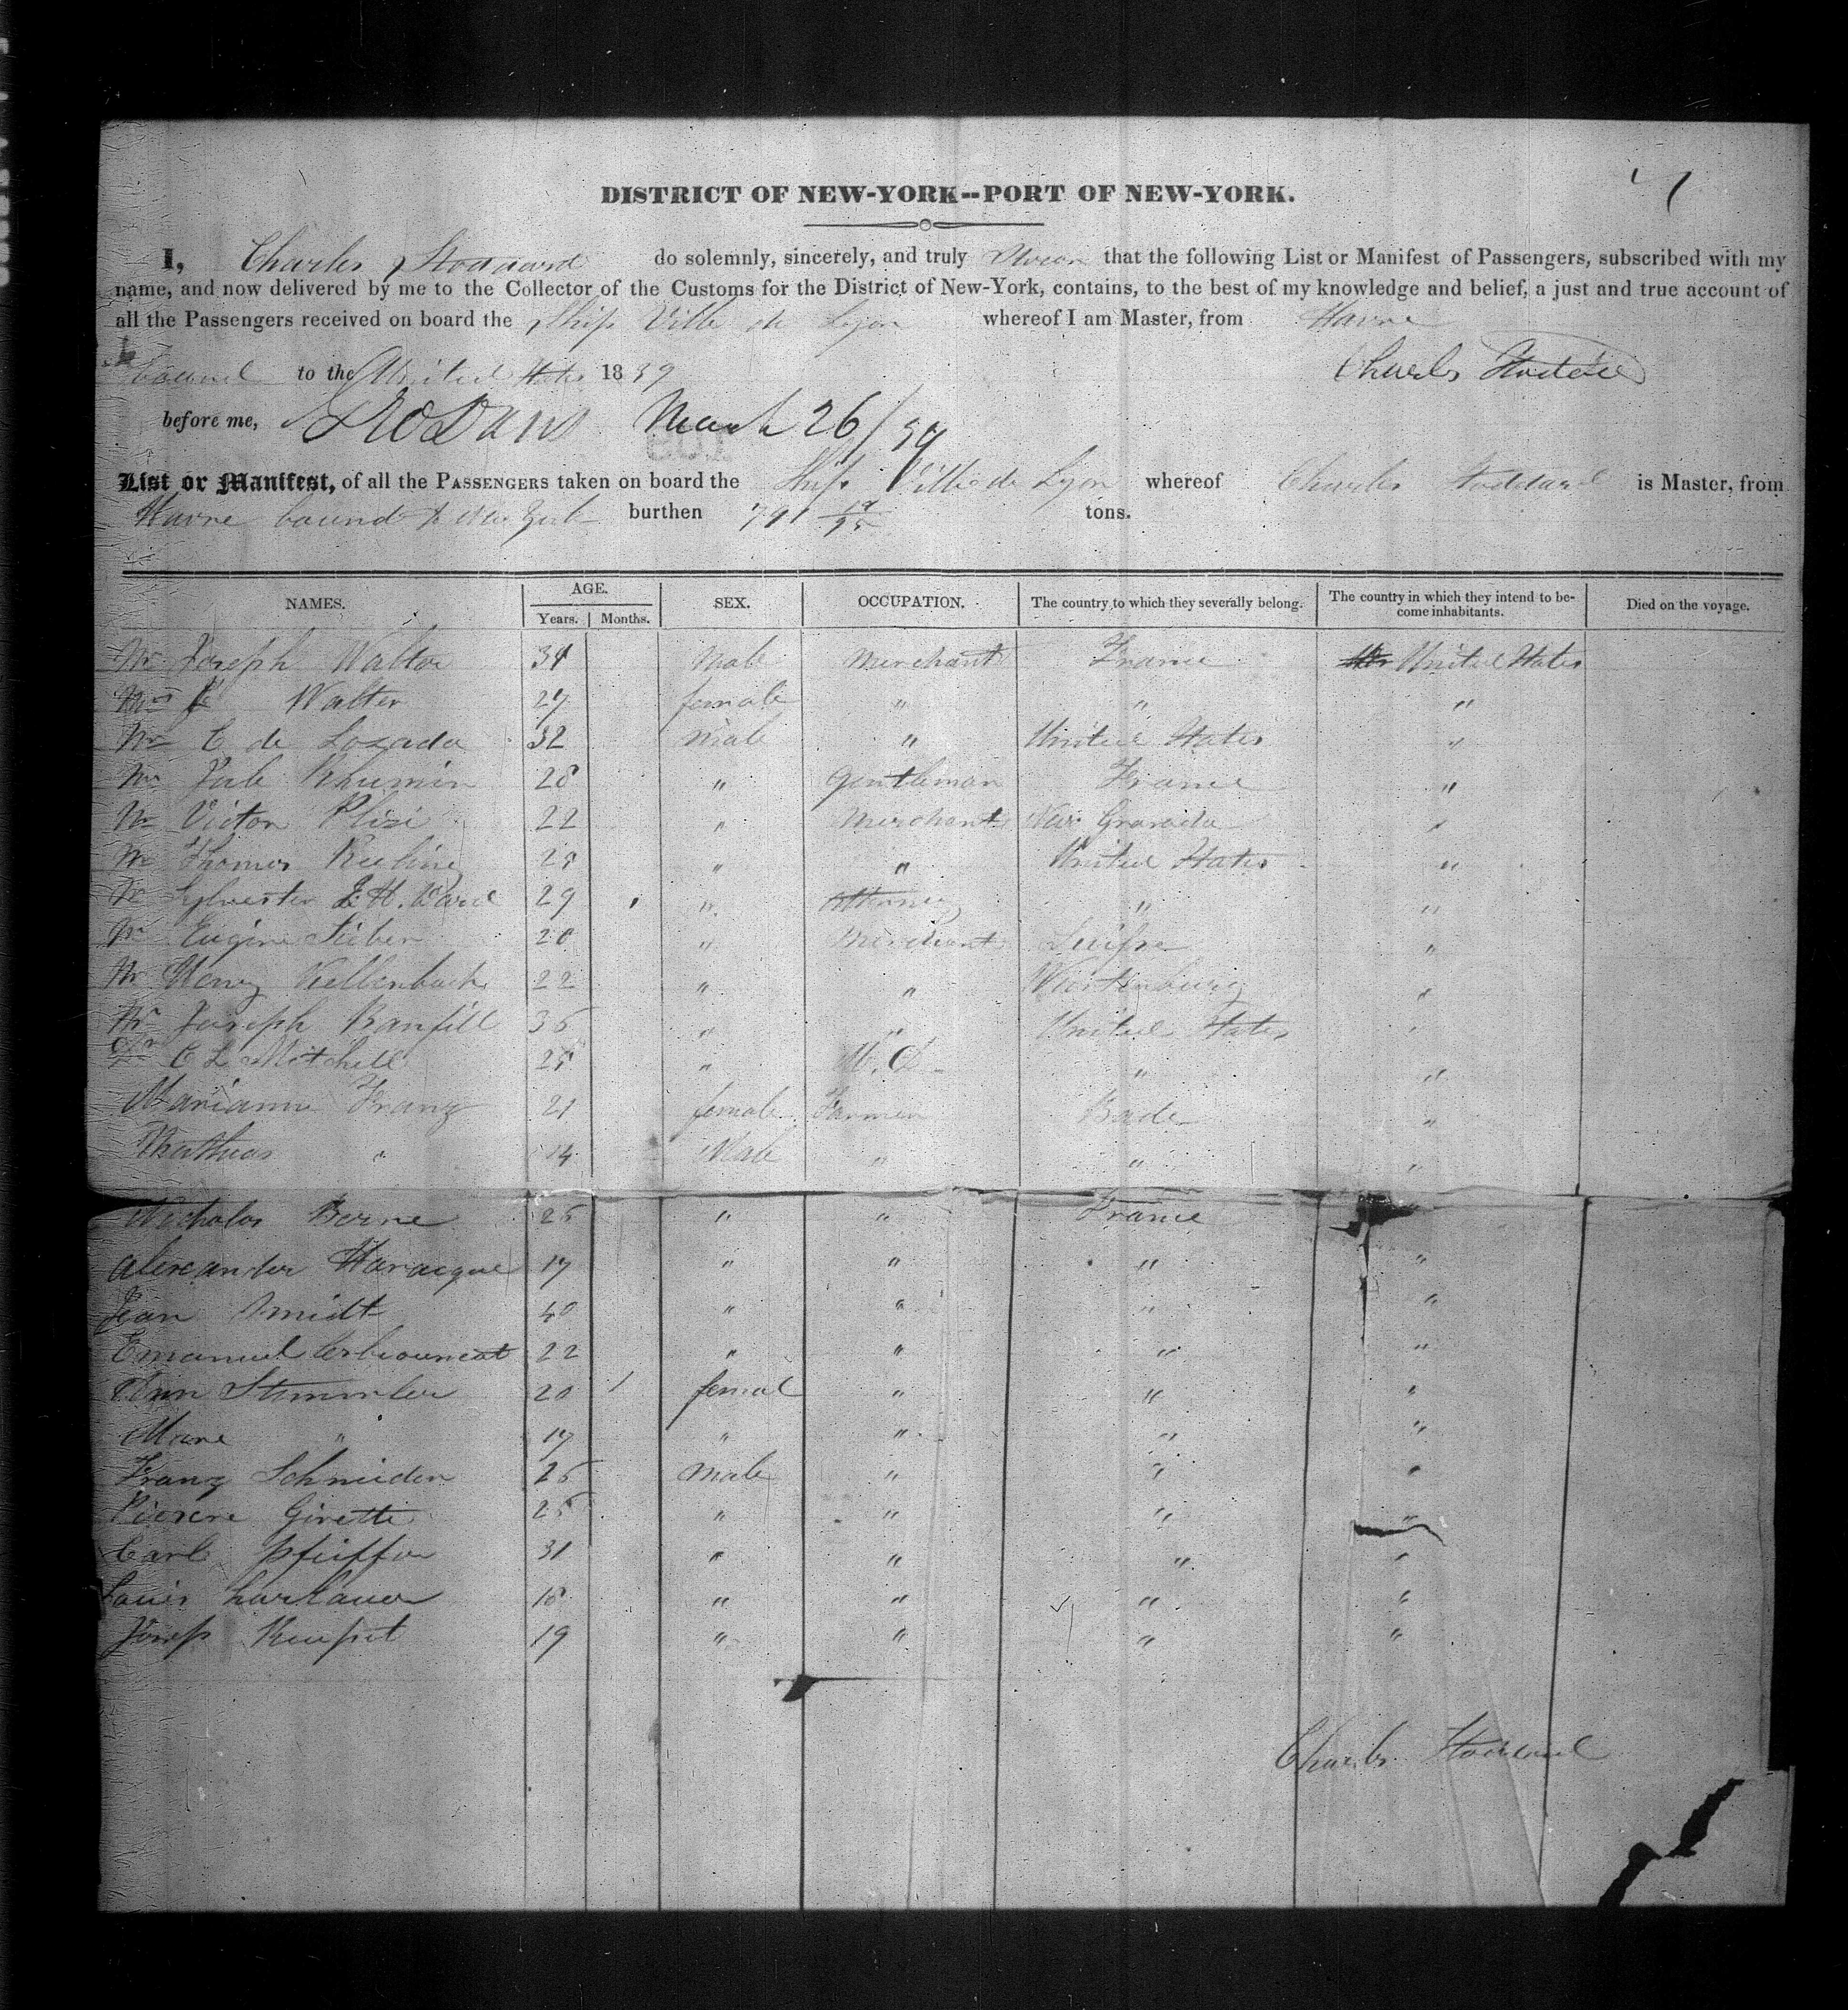 DISTRICT OF NEW-YORK--PORT OF NEW-YORK.
I, Charles Stoddard do solemnly, sincerely, and truly Swear that the following List or Manifest of Passengers, subscribed with my
name, and now delivered by me to the Collector of the Customs for the District of New-York, contains, to the best of my knowledge and belief, a just and true account of
all the Passengers received on board the Ship Ville de Lyon whereof I am Master, from Havre
bound to the United States 1839 Charles Stoddard
before me, March 26/39
List or Manifest, of all the PASSENGERS taken on board the Ship Ville de Lyon whereof Charles Stoddard is Master, from
Havre bound to New York burthen 791 tons.
NAMES. AGE. SEX. OCCUPATION. The country to which they severally belong. The country in which they intend to be- Died on the voyage.
Years. Months. come inhabitants.
Mr Joseph Walter 34 Male Merchant France United States
Mrs Walter 27 female " " "
Mr C de Lozada 32 Male " United States "
Mr 28 " Gentleman France "
Mr Victor 22 " Merchant New Granada "
Mr Thomas Keeling 25 " " United States "
Mr Sylvester L. H. Ward 29 " Attorney " "
Mr Eugine Sieber 20 " Merchant Suisse "
Mr Henry Kellenbach 22 " " Wurtemburg "
Mr Joseph Banfill 35 " " United States "
Dr C L Mitchell 25 " M.D. " "
Marianne Franz 21 female Farmer Bade "
Mathias " 14 Male " " "
Nicholas Berne 25 " " France
Alexander Haracque 17 " " " "
Jean Smidt 40 " " " "
Emanuel 22 " " " "
Ann Stimmler 20 femal " " "
Marie " 17 " " " "
Franz Schneider 25 male " " "
Pierre Girette 25 " " " "
Carl Pfeiffer 31 " " " "
Louis 18 " " " "
Joseph 19 " " " "
Charles Stoddard